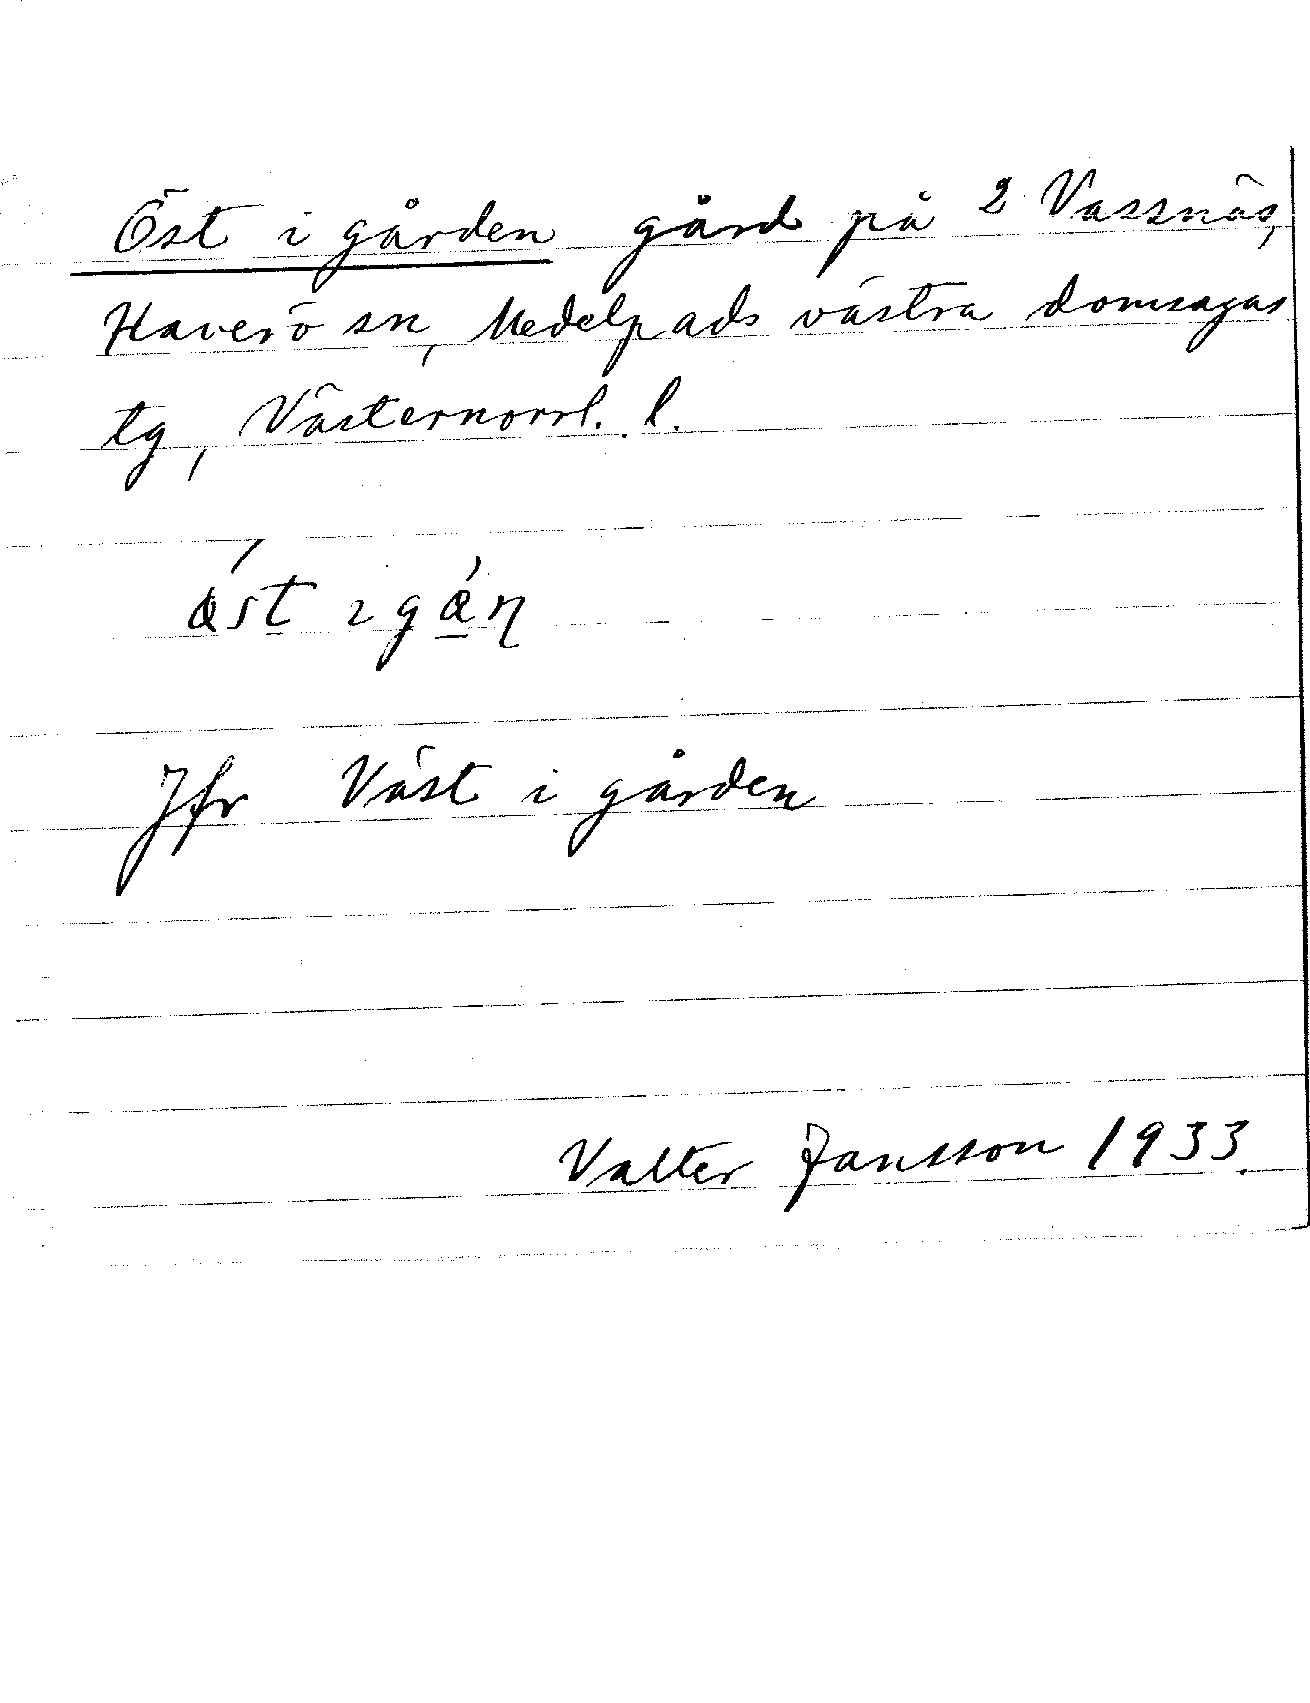 Öst i gården gård på 2 Vassnäs,
Haverö sn, Medelpads västra domsagas
tg, Västernorrl. l.
Jfr Väst i gården
Valter Jansson 1933.